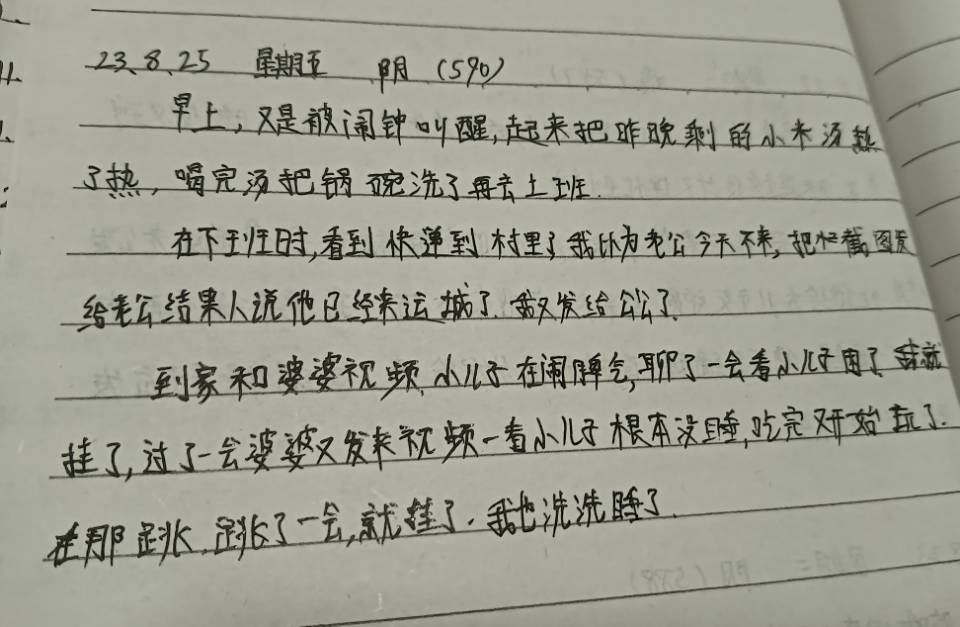 23.8.25 星期五 阴 (590)
早上,又是被闹钟叫醒,起来把昨晚剩的小米汤热
了热,喝完汤把锅碗洗了再去上班.
在下班时,看到快递到村里了我以为老公今天不来,把忙截图发
给老公结果人说他已经来运城了.我又发给公公了.
到家和婆婆视频,小儿子在闹脾气,聊了一会看小儿子困了我就
挂了,过了一会婆婆又发来视频一看小儿子根本没睡,吃完又开始玩了.
在那跳,跳了一会,就挂了.我也洗洗睡了.